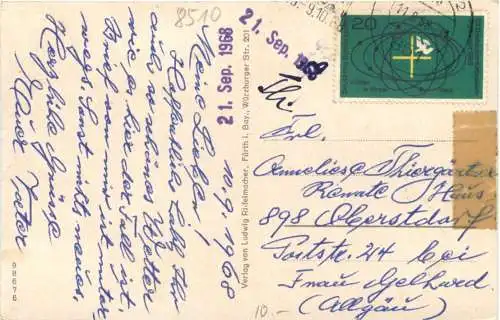 8510
21. Sep. 1968
21. Sep. 1968
10.9.1968
Meine Lieben!
Hoffentlich habt Ihr
auch so schönes Wetter
wie es hier der Fall ist.
Brief von mir ist unter-
wegs. Sonst nichts neues.
Herzliche Grüsse
Euer Vater
98676
Verlag von Ludwig Riffelmacher, Fürth i. Bay., Würzburger Str. 201
20
Frl.
Anneliese Thiergärtner
Renate Haus
898 Oberstdorf
Poststr. 24 bei
Frau Gelhard
(Allgäu)
10.-